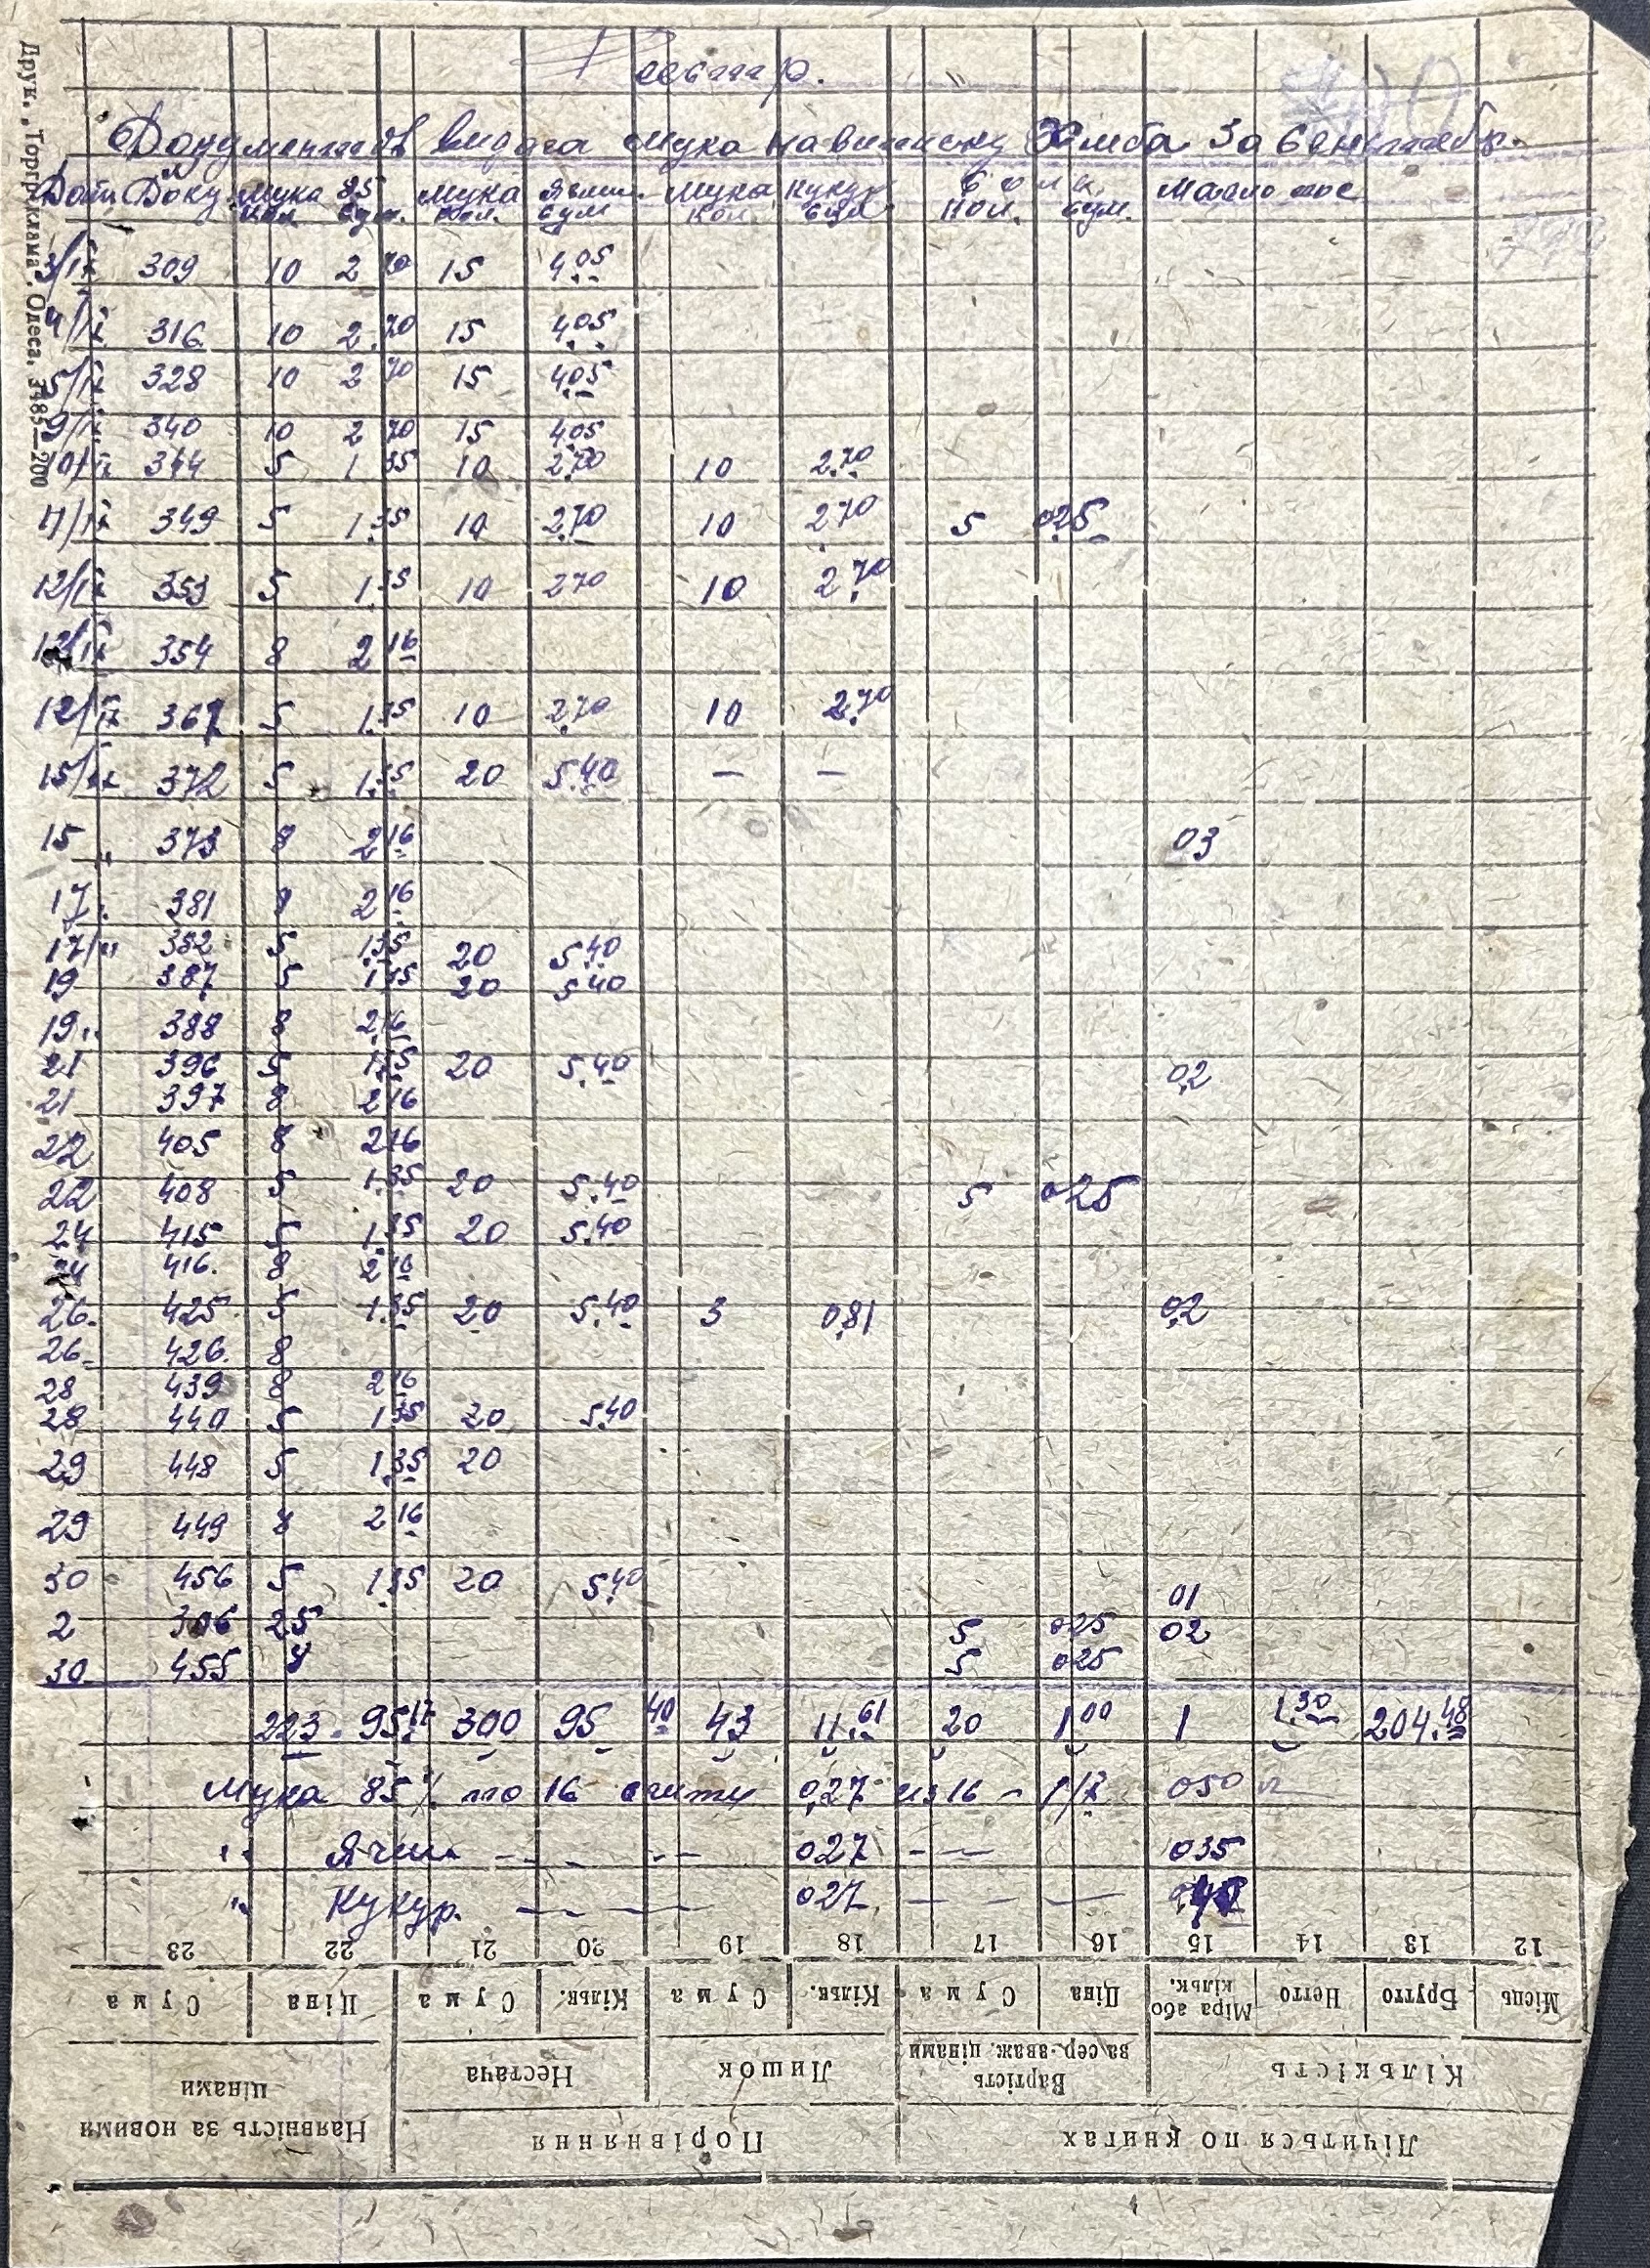 Реестр.
Документов видача мука на выпечку Хлеба За Сентябр.
Дата Доку. мука 85 мука Ячм. мука кукур. Соль масло
кол. сум. кол. сум кол. сум кол. сум.
3/IX 309 10 2 70 15 4.05
4/IX 316 10 2.70 15 4.05
5/IX 328 10 2 70 15 4.05
9/IX 340 10 2 70 15 4.05
10/IX 344 5 1 35 10 2.70 10 2.70
11/IX 349 5 1.35 10 2.70 10 2.70 5 0.25
12/IX 353 5 1.35 10 2 70 10 2.70
12/IX 354 8 2 16
12/IX 367 5 1.35 10 2.70 10 2.70
15/IX 372 5 1.35 20 5.40 — —
15 " 373 8 2 16 03
17. 381 8 2 16
17/IX 382 5 1.35 20 5.40
19 387 5 1 35 20 5 40
19 " 388 8 2.16
21 396 5 1.35 20 5.40 0.2
21 397 8 2 16
22 405 8 2 16
22 408 5 1.35 20 5.40 5 0 25
24 415 5 1.35 20 5.40
24 416. 8 2 16
26. 425 5 1.35 20 5.40 3 0.81 0.2
26 426. 8
28 439 8 2 16
28 440 5 1 35 20 5.40
29 448 5 1.35 20
29 449 8 2 16
30 456 5 1.35 20 5.40 01
2 306 25 5 0 25 02
30 455 8 5 0 25
223. 95.17 300 95 40 43 11.61 20 1 00 1 1.30 204.48
Мука 85% по 16 0.27 из 16 050
" Ячм. — — 0 27 — — 035
" Кукур. — — 0 27. — —
23 22 21 20 19 18 17 16 15 14 13 12
Сума Ціна Сума Кільк. Сума Кільк. Сума Ціна Міра або кільк. Нетто Брутто Місць
Наявність за новими цінами Нестача Лишок Вартість за сер.-зваж. цінами Кількість
Порівняння Лічиться по книгах
Друк. „Торгреклама“, Одеса, 3485—2000